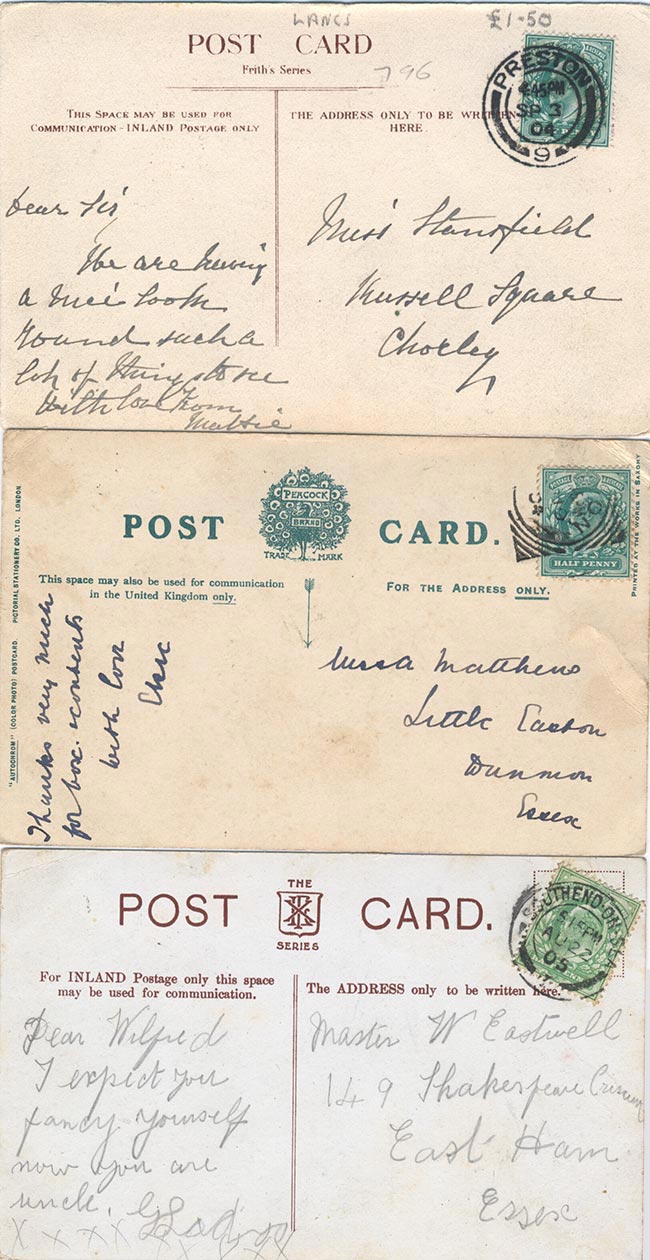 LANCS
£1-50
POST CARD
Frith's Series
796
THIS SPACE MAY BE USED FOR
COMMUNICATION - INLAND POSTAGE ONLY
THE ADDRESS ONLY TO BE WRITTEN
HERE.
PRESTON
4.45PM
SP 3
04
9
Dear Sir
We are having
a nice look
round such a
lot of things to see
With love from
Mattie
Miss Stansfield
Russell Square
Chorley
"AUTOCHROM" (COLOR PHOTO) POSTCARD. PICTORIAL STATIONERY CO. LTD. LONDON
POST CARD.
PEACOCK
BRAND
TRADE MARK
HALF PENNY
PRINTED AT THE WORKS IN SAXONY
This space may also be used for communication
in the United Kingdom only.
FOR THE ADDRESS ONLY.
Thanks very much
for box & contents
with love
Elsie
Matthews
Little Easton
Dunmow
Essex
POST CARD.
THE
SERIES
SOUTHEND-ON-SEA
AU 22
05
For INLAND Postage only this space
may be used for communication.
The ADDRESS only to be written here.
Dear Wilfred
I expect you
fancy yourself
now you are
uncle. Gladys
x x x x x x x x
Master W Eastwell
149 Shakespeare Crescent
East Ham
Essex